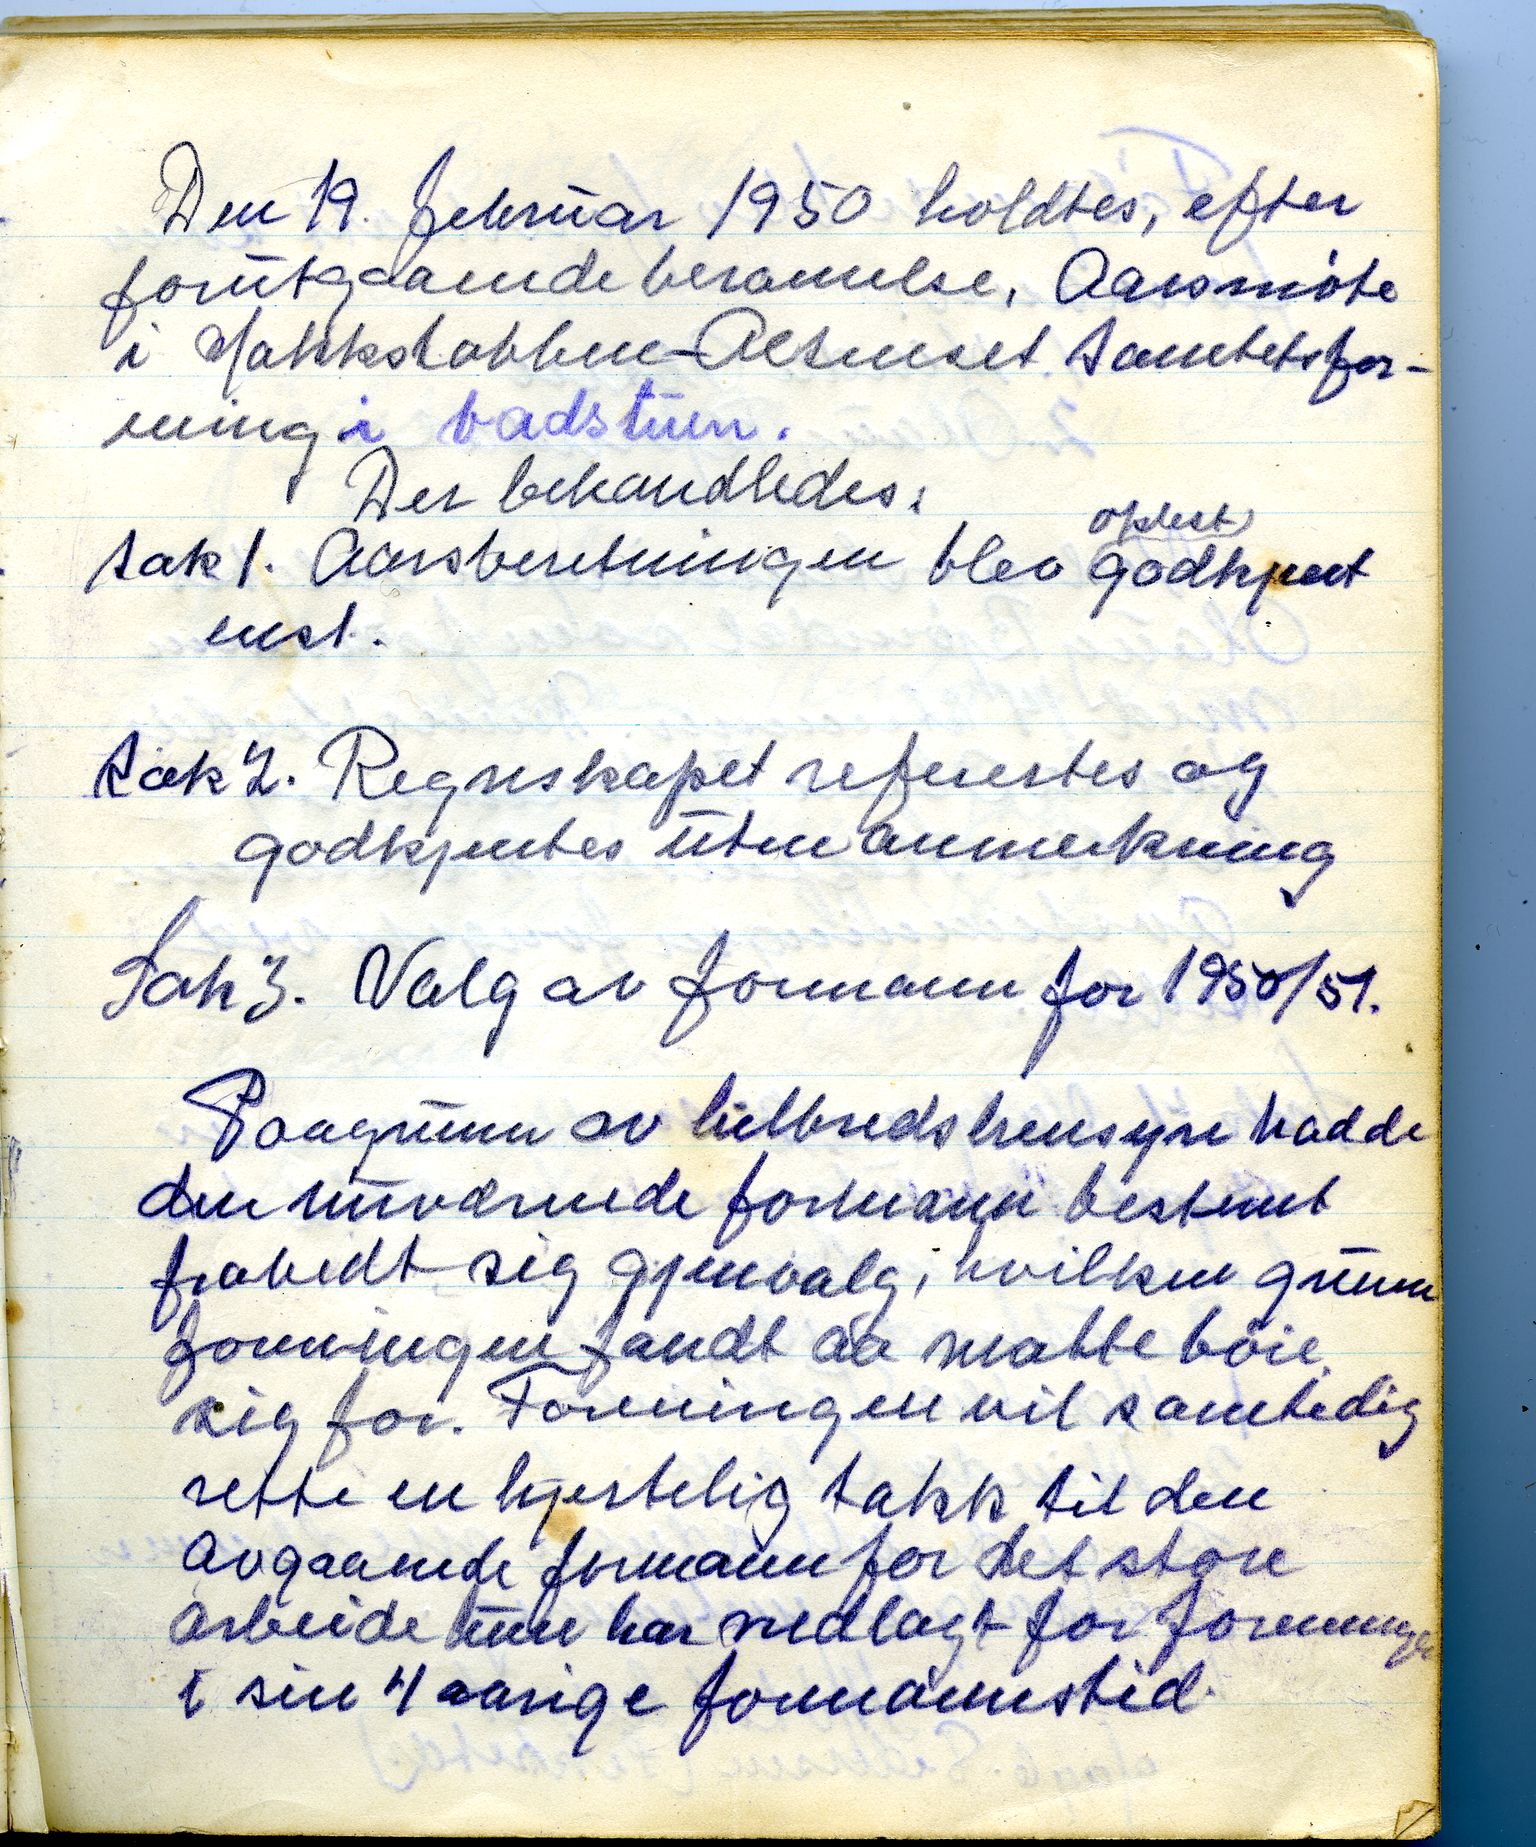 Den 19. februar 1950 holdtes, efter
forutgaaende beramelse, Aarsmøte
i Hakkstabben-Altneset Sanitetsfor-
ening i badstuen.
Der behandledes:
Sak 1. Aarsberetningen blev oplest godkjent
enst.
Sak 2. Regnskapet referertes og
godkjentes uten anmerkning
Sak 3. Valg av formann for 1950/51.
Paagrunn av helbredshensyn hadde
den nuværende formann bestemt
frabedt sig gjenvalg, hvilken grunn
foreningen fandt aa maatte bøie
sig for. Foreningen vil samtidig
rette en hjertelig takk til den
avgaaende formann for det store
arbeide hun har nedlagt for foreningen
i sin 4 aarige formannstid.